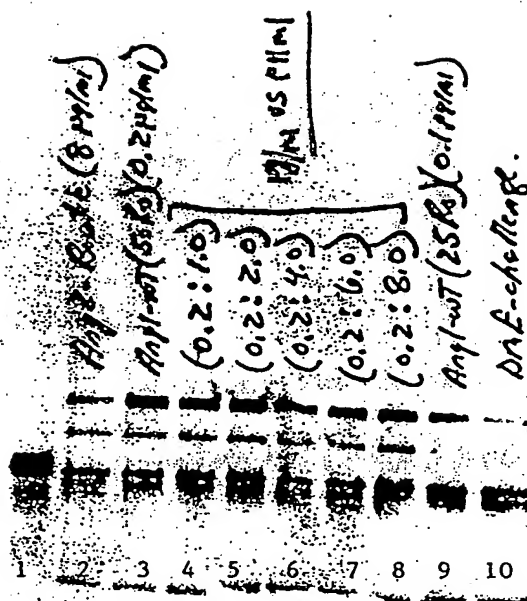 (8 µg/ml)
Ang1-WT (55Ro) (0.2 µg/ml)
µg/ml vs µg/ml
(0.2:1.0)
(0.2:2.0)
(0.2:4.0)
(0.2:6.0)
(0.2:8.0)
Ang1-WT (25Ro) (0.1 µg/ml)
DME-challenge.
1 2 3 4 5 6 7 8 9 10